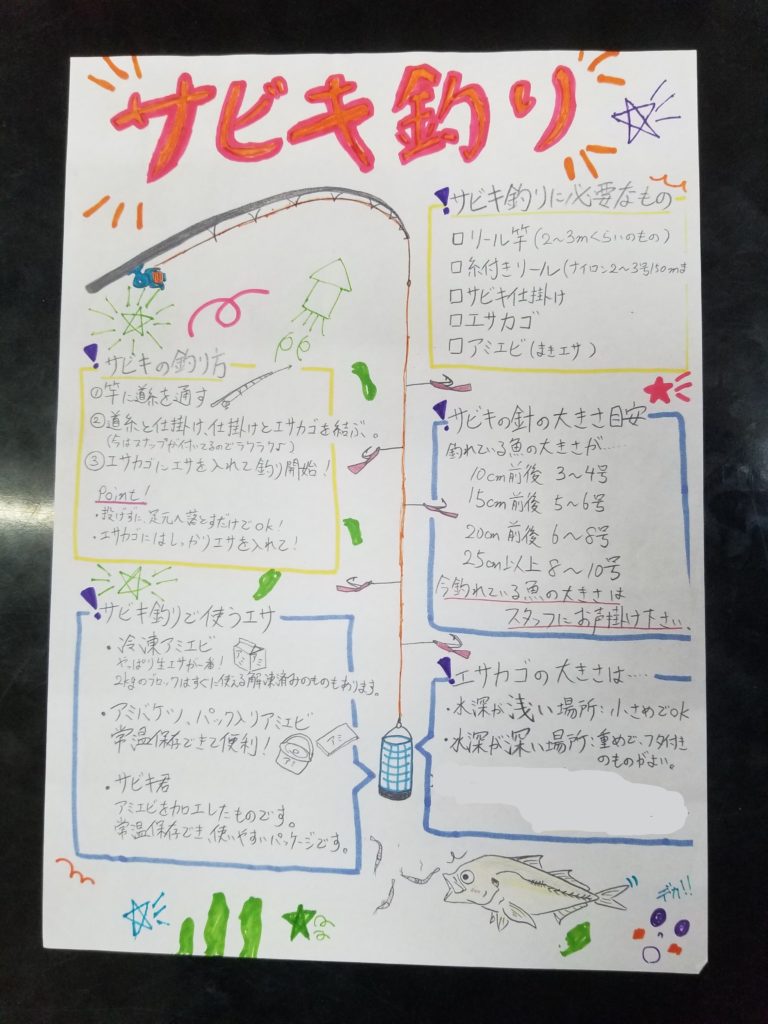 サビキ釣り
！サビキ釣りに必要なもの
□リール竿（2〜3mくらいのもの）
□糸付きリール（ナイロン2〜3号150mま
□サビキ仕掛け
□エサカゴ
□アミエビ（まきエサ）
！サビキの釣り方
①竿に道糸を通す
②道糸と仕掛け、仕掛けとエサカゴを結ぶ。
（今はスナップが付いてるのでラクラク♪）
③エサカゴにエサを入れて釣り開始！
Point!
・投げずに、足元へ落とすだけでOK！
・エサカゴにはしっかりエサを入れて！
！サビキの針の大きさ目安
釣れている魚の大きさが……
10cm前後 3〜4号
15cm前後 5〜6号
20cm前後 6〜8号
25cm以上 8〜10号
今釣れている魚の大きさは
スタッフにお声掛け下さい。
！サビキ釣りで使うエサ
・冷凍アミエビ
やっぱり生エサが一番！
2kgのブロックはすぐに使える解凍済みのものもあります。
アミ
アミ
・アミバケツ、パック入りアミエビ
常温保存できて便利！
アミ
アミ
・サビキ君
アミエビを加工したものです。
常温保存でき、使いやすいパッケージです。
！エサカゴの大きさは……
・水深が浅い場所：小さめでOK
・水深が深い場所：重めで、フタ付き
のものがよい。
デカ!!